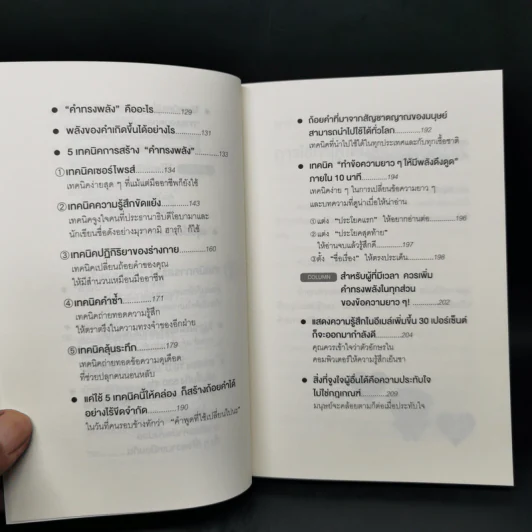 ● "คำทรงพลัง" คืออะไร..........129
● พลังของคำเกิดขึ้นได้อย่างไร..........131
● 5 เทคนิคการสร้าง "คำทรงพลัง"..........133
①เทคนิคเซอร์ไพรส์..........134
เทคนิคง่ายสุด ๆ ที่แม้แต่มืออาชีพก็ยังใช้
②เทคนิคความรู้สึกขัดแย้ง..........143
เทคนิคจูงใจคนที่ประธานาธิบดีโอบามาและ
นักเขียนชื่อดังอย่างมุราคามิ ฮารุกิ ก็ใช้
③เทคนิคปฏิกิริยาของร่างกาย..........160
เทคนิคเปลี่ยนถ้อยคำของคุณ
ให้มีสำนวนเหมือนมืออาชีพ
④เทคนิคคำซ้ำ..........171
เทคนิคถ่ายทอดความรู้สึก
ให้ตราตรึงในความทรงจำของอีกฝ่าย
⑤เทคนิคลุ้นระทึก..........179
เทคนิคถ่ายทอดข้อความดุเดือด
ที่ช่วยปลุกคนนอนหลับ
● แค่ใช้ 5 เทคนิคนี้ให้คล่อง ก็สร้างถ้อยคำได้
อย่างไร้ขีดจำกัด..........190
ในวันที่คนรอบข้างทักว่า "คำพูดที่ใช้เปลี่ยนไปนะ"
● ถ้อยคำที่มาจากสัญชาตญาณของมนุษย์
สามารถนำไปใช้ได้ทั่วโลก..........192
เทคนิคที่นำไปใช้ได้ในทุกประเทศและกับทุกเชื้อชาติ
● เทคนิค "ทำข้อความยาว ๆ ให้มีพลังดึงดูด"
ภายใน 10 นาที..........194
เทคนิคง่าย ๆ ในการเปลี่ยนข้อความยาว ๆ
และบทความที่ดูน่าเบื่อให้น่าอ่าน
①แต่ง "ประโยคแรก" ให้อยากอ่านต่อ..........196
②แต่ง "ประโยคสุดท้าย"
ให้อ่านจบแล้วรู้สึกดี..........197
③ตั้ง "ชื่อเรื่อง" ให้ตรงประเด็น..........198
COLUMN สำหรับผู้ที่มีเวลา ควรเพิ่ม
คำทรงพลังในทุกส่วน
ของข้อความยาว ๆ!..........202
● แสดงความรู้สึกในอีเมลเพิ่มขึ้น 30 เปอร์เซ็นต์
ก็จะออกมากำลังดี..........204
คุณควรเข้าใจว่าตัวอักษรใน
คอมพิวเตอร์ให้ความรู้สึกเย็นชา
● สิ่งที่จูงใจผู้อื่นได้คือความประทับใจ
ไม่ใช่กฎเกณฑ์..........209
มนุษย์จะคล้อยตามก็ต่อเมื่อประทับใจ